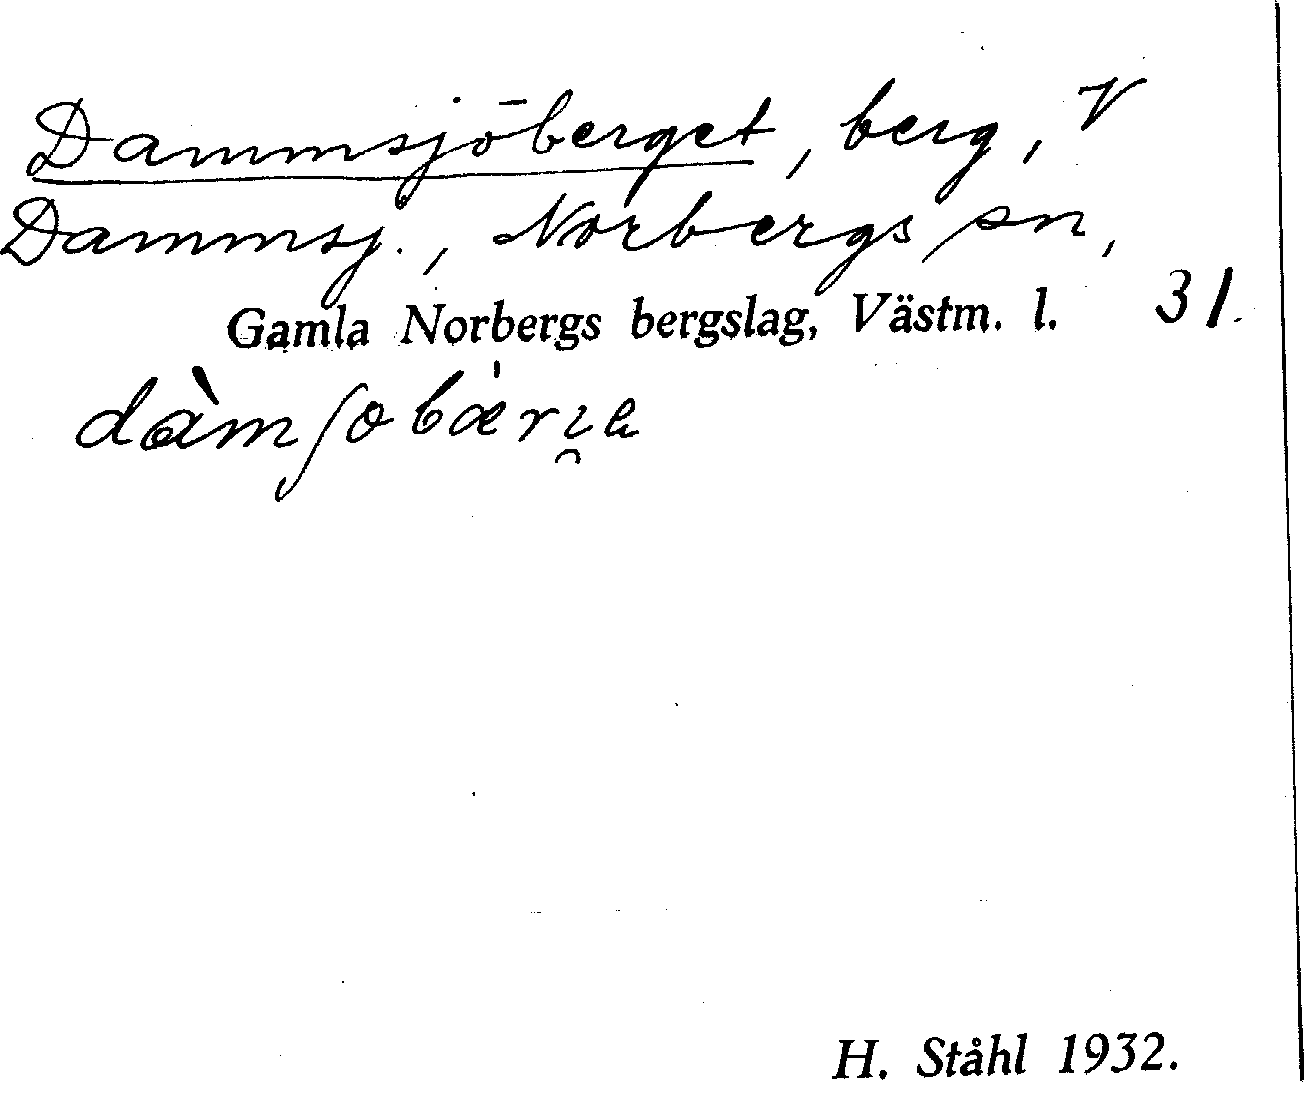 Dammsjöberget, berg, V
Dammsj., Norbergs sn,
Gamla Norbergs bergslag, Västm. l. 31.
dàmʃobæ̀rı̯a
H. Ståhl 1932.